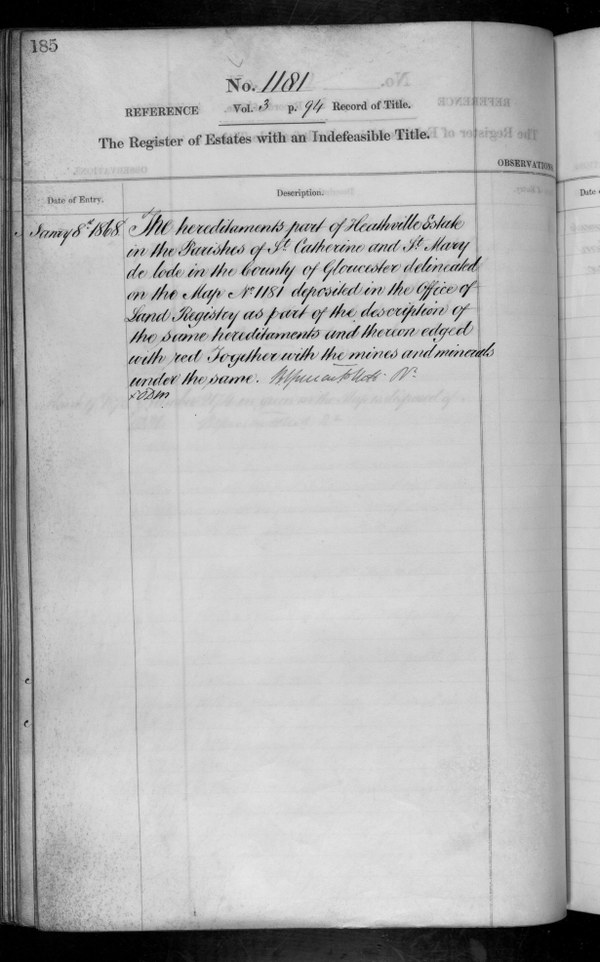 185
No. 1181
REFERENCE Vol. 3 p. 94 Record of Title.
The Register of Estates with an Indefeasible Title.
OBSERVATIONS
Date of Entry. Description.
Jany 8th 1868 The hereditaments part of Heathville Estate
in the Parishes of St. Catherine and St. Mary
de lode in the County of Gloucester delineated
on the Map No 1181 deposited in the Office of
Land Registry as part of the description of
the same hereditaments and thereon edged
with red Together with the mines and minerals
under the same.